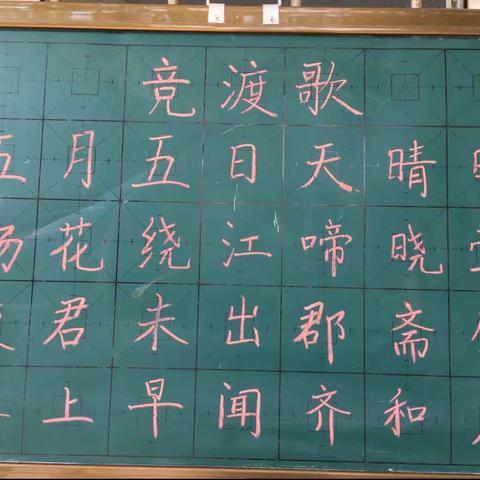 竞渡歌
五月五日天晴
花绕江啼晓
君未出郡斋
上早闻齐和